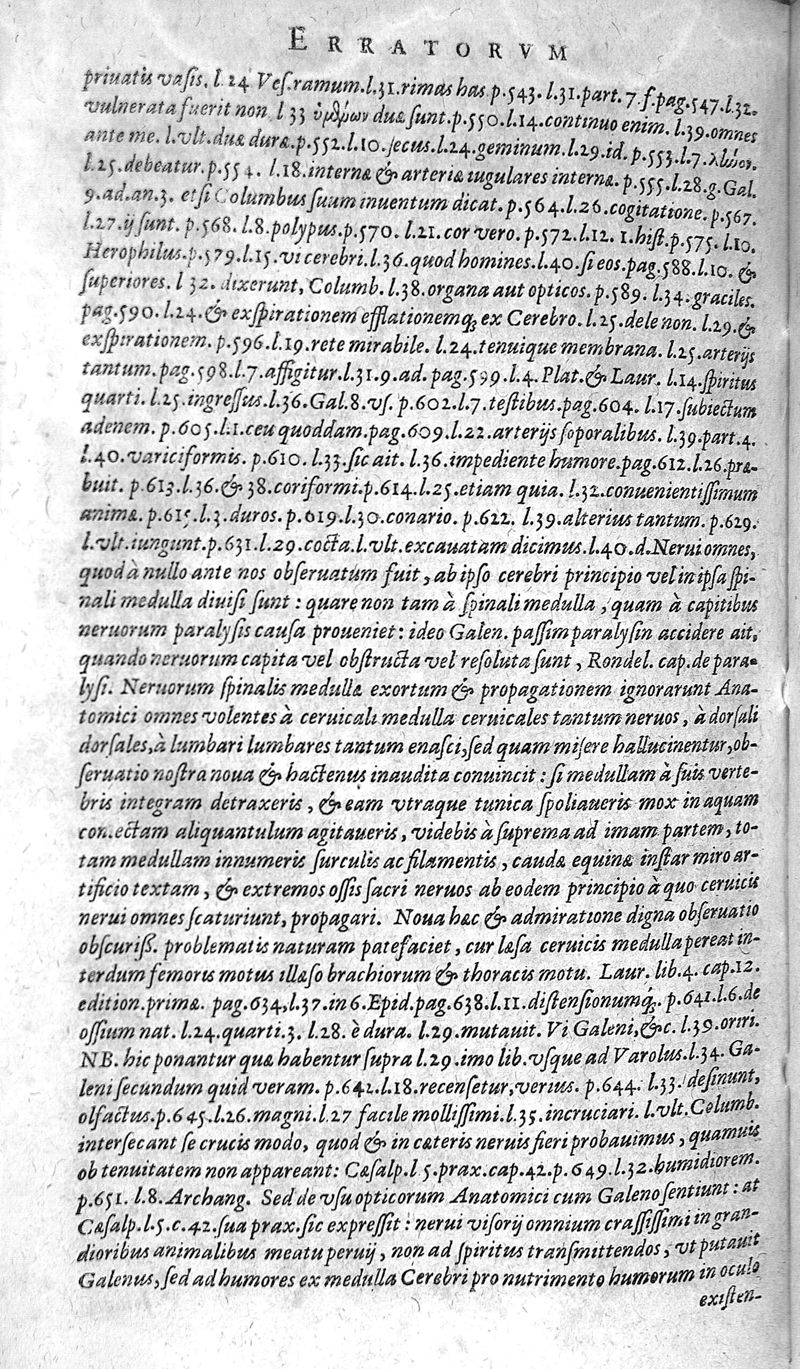 ERRATORVM
priuatis vasis. l.24 Ves.ramum.l.31.rimas has p.543. l.31.part. 7.f.pag.547.l.32.
vulnerata fuerit non l 33 duæ sunt.p.550.l.14.continuo enim. l.39.omnes
ante me. l.vlt.duæ duræ.p.552.l.10.jecus.l.24.geminum.l.29.id.p.553.l.7.
l.25.debeatur.p.554. l.18.internæ & arteriæ iugulares internæ. p.555.l.28.g.Gal.
9.ad.an.3. etsi Columbus suum inuentum dicat. p.564.l.26.cogitatione.p.567.
l.27.ij sunt. p.568. l.8.polypus.p.570. l.21.cor vero. p.572.l.12. 1.hist.p.575. l.10.
Herophilus.p.579.l.15.vi cerebri.l.36.quod homines.l.40.si eos.pag.588.l.10.&
superiores. l 32. dixerunt, Columb. l.38.organa aut opticos. p.589. l.34.graciles.
pag.590. l.24.& exspirationem efflationemq; ex Cerebro. l.25.dele non. l.29.&
exspirationem. p.596. l.19.rete mirabile. l.24.tenuique membrana. l.25.arterijs
tantum.pag.598.l.7.affigitur.l.31.9.ad. pag.599.l.4. Plat.& Laur. l.14.spiritus
quarti. l.25.ingressus.l.36.Gal.8.vs. p.602.l.7.testibus.pag.604. l.17.subiectum
adenem. p.605.l.1.ceu quoddam.pag.609.l.22.arterijs soporalibus. l.39.part.4.
l.40.variciformis. p.610. l.33.sic ait. l.36.impediente humore.pag.612.l.26.præ-
buit. p.613.l.36.& 38.coriformi.p.614.l.25.etiam quia. l.32.conuenientissimum
animæ. p.615.l.3.duros. p.619.l.30.conario. p.622. l.39.alterius tantum.p.629.
l.vlt.iungunt.p.631.l.29.cocta.l.vlt.excauatam dicimus.l.40.d.Nerui omnes,
quod à nullo ante nos obseruatum fuit, ab ipso cerebri principio vel in ipsa spi-
nali medulla diuisi sunt: quare non tam à spinali medulla, quam à capitibus
neruorum paralysis causa proueniet: ideo Galen. passim paralysin accidere ait,
quando neruorum capita vel obstructa vel resoluta sunt, Rondel. cap.de para-
lysi. Neruorum spinalis medullæ exortum & propagationem ignorarunt Ana-
tomici omnes volentes à ceruicali medulla ceruicales tantum neruos, à dorsali
dorsales,à lumbari lumbares tantum enasci,sed quam misere hallucinentur,ob-
seruatio nostra noua & hactenus inaudita conuincit: si medullam à suis verte-
bris integram detraxeris, & eam vtraque tunica spoliaueris mox in aquam
coniectam aliquantulum agitaueris, videbis à suprema ad imam partem, to-
tam medullam innumeris surculis ac filamentis, caudæ equinæ instar miro ar-
tificio textam, & extremos ossis sacri neruos ab eodem principio à quo ceruicis
nerui omnes scaturiunt, propagari. Noua hæc & admiratione digna obseruatio
obscuriß. problematis naturam patefaciet, cur læsa ceruicis medulla pereat in-
terdum femoris motus illæso brachiorum & thoracis motu. Laur. lib.4. cap.12.
edition.primæ. pag.634,l.37.in 6.Epid.pag.638.l.11.distensionumq;. p.641.l.6.de
ossium nat. l.24.quarti.3. l.28. è dura. l.29.mutauit. Vi Galeni,&c. l.39.oriri.
NB. hic ponantur quæ habentur supra l.29.imo lib.vsque ad Varolus.l.34. Ga-
leni secundum quid veram. p.642.l.18.recensetur,verius. p.644. l.33.desinunt,
olfactus.p.645.l.26.magni.l.27 facile mollissimi.l.35.incruciari. l.vlt.Columb.
intersecant se crucis modo, quod & in cæteris neruis fieri probauimus, quamuis
ob tenuitatem non appareant: Cæsalp.l 5.prax.cap.42.p.649.l.32.humidiorem.
p.651. l.8.Archang. Sed de vsu opticorum Anatomici cum Galeno sentiunt: at
Cæsalp.l.5.c.42.sua prax.sic expressit: nerui visorij omnium crassissimi in gran-
dioribus animalibus meatu peruij, non ad spiritus transmittendos, vt putauit
Galenus, sed ad humores ex medulla Cerebri pro nutrimento humorum in oculo
existen-